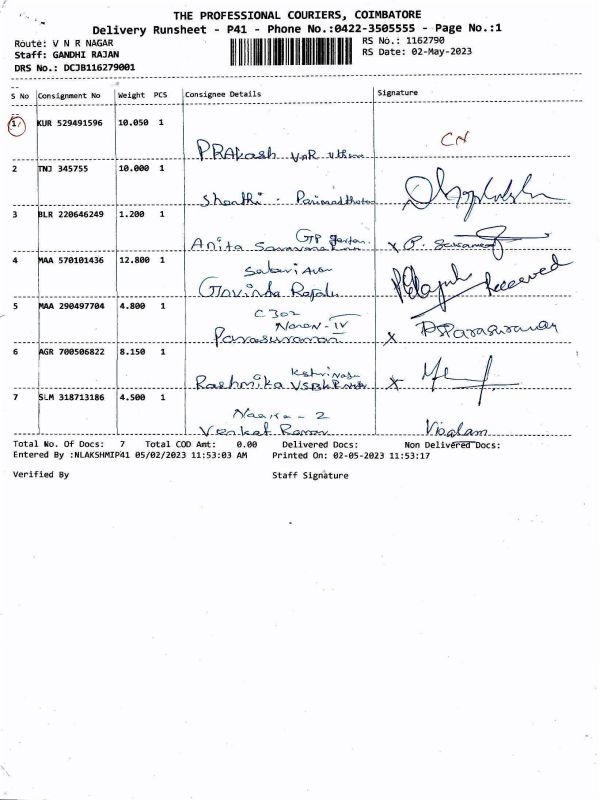 THE PROFESSIONAL COURIERS, COIMBATORE
Delivery Runsheet - P41 - Phone No.:0422-3505555 - Page No.:1
Route: V N R NAGAR
RS No.: 1162790
Staff: GANDHI RAJAN
RS Date: 02-May-2023
DRS No.: DCJB116279001
S No Consignment No Weight PCS Consignee Details Signature
1 KUR 529491596 10.050 1
PRAkash VNR CN
2 TNJ 345755 10.000 1
Shanthi
3 BLR 220646249 1.200 1
GTP
Anita
4 MAA 570101436 12.800 1
Received
Govinda Rajalu
5 MAA 290497704 4.800 1
C302
IV
Parasuraman x PSParasuraman
6 AGR 700506822 8.150 1
Rashmika x
7 SLM 318713186 4.500 1
2
Venkat Raman
Total No. Of Docs: 7 Total COD Amt: 0.00 Delivered Docs: Non Delivered Docs:
Entered By :NLAKSHMIP41 05/02/2023 11:53:03 AM Printed On: 02-05-2023 11:53:17
Verified By Staff Signature